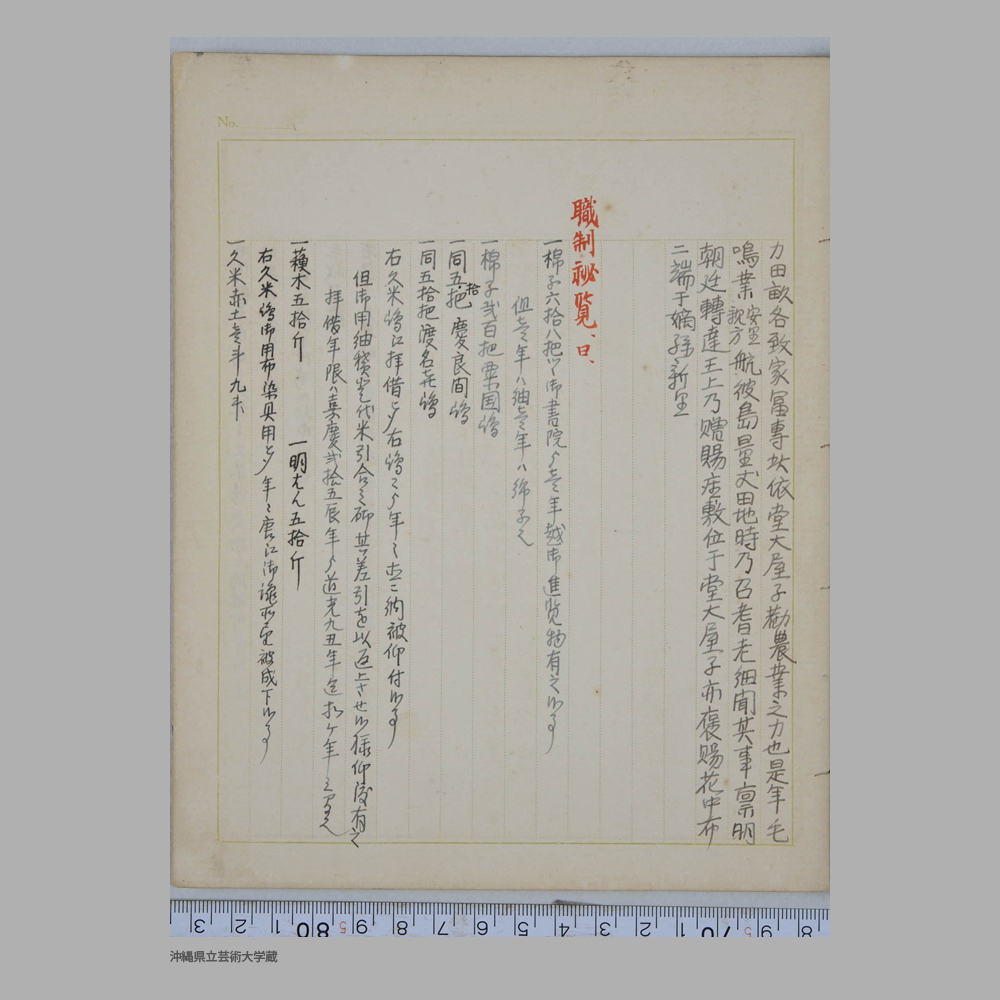 力田畝各致家冨專攰依堂大屋子勸農業之力也是年毛
鳴業 安里親方 航彼島量丈田地時乃召耆老細聞其事稟明
朝廷轉達王上乃贈賜座敷位于堂大屋子亦褒賜花中布
二端于嫡孫新里
職制祕覧、曰、
一棉子六拾八把 御書院 壱年越御進覧物有之
但壱年ハ紬壱年ハ綿子
一棉子弐百把粟国嶋
一同五拾把 慶良間嶋
一同五拾把渡名㐂嶋
右久米嶋江拝借 右嶋 年々 納被仰付
但御用紬 代米引合 其差引を以返上させ 様仰渡有之
拝借年限ハ嘉慶弐拾五辰年 道光九丑年迄拾ケ年
一蘓木五拾斤 一明 五拾斤
右久米嶋御用布染具用 年々唐江御誂 被成下
一久米赤土壱斗九升
No.
3 2 80 9 8 7 6 5 4 3 2 70 9 8
沖縄県立芸術大学蔵